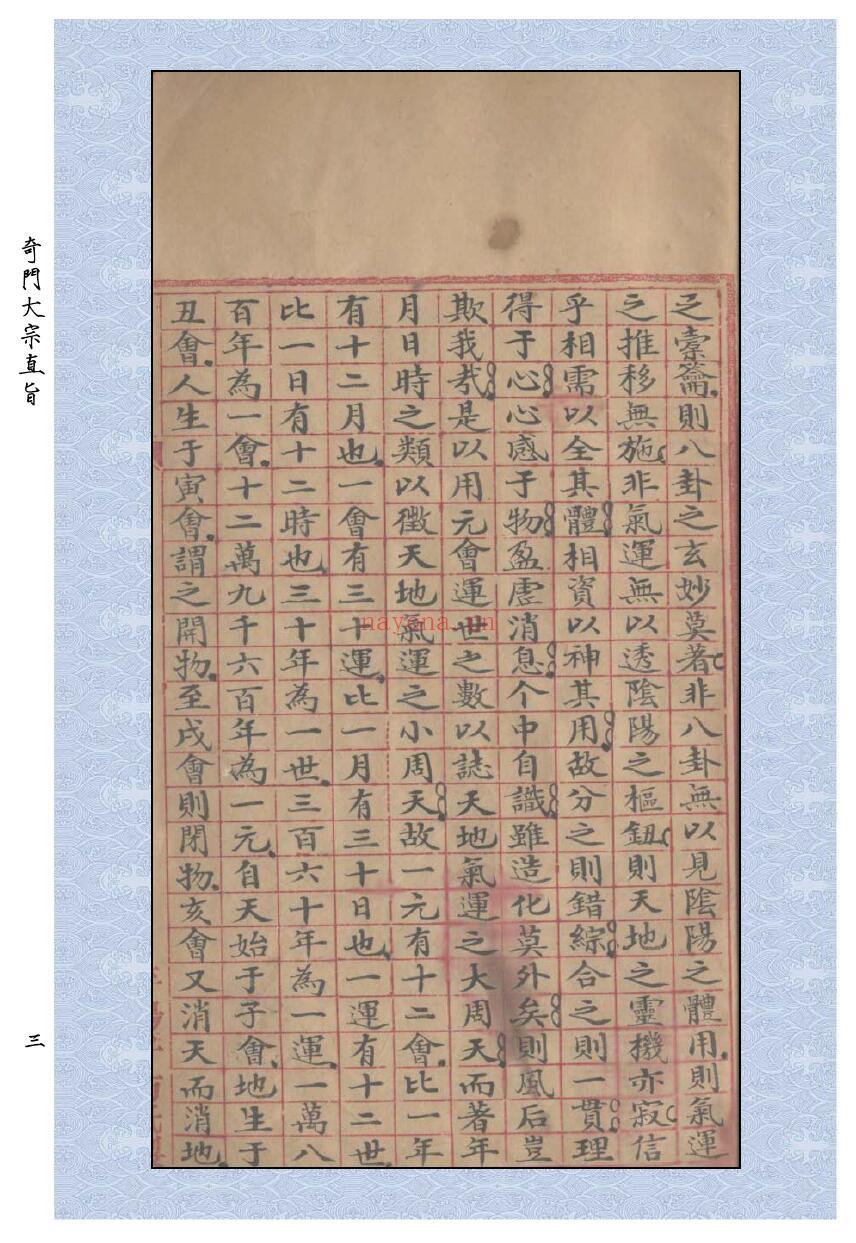 之橐籥則八卦之玄妙莫著非八卦無以見陰陽之體用則氣運
之推移無施非氣運無以透陰陽之樞鈕則天地之靈機亦寂信
乎相需以全其體相資以神其用故分之則錯綜合之則一貫理
得于心心感于物盈虛消息个中自識雖造化莫外矣則風后豈
欺我哉是以用元會運世之數以誌天地氣運之大周天而著年
月日時之類以徵天地氣運之小周天故一元有十二會比一年
有十二月也一會有三十運比一月有三十日也一運有十二世
比一日有十二時也三十年為一世三百六十年為一運一萬八
百年為一會十二萬九千六百年為一元自天始于子會地生于
丑會人生于寅會謂之開物至戌會則閉物亥會又消天而消地
奇門大宗直旨
三
nayona.cn